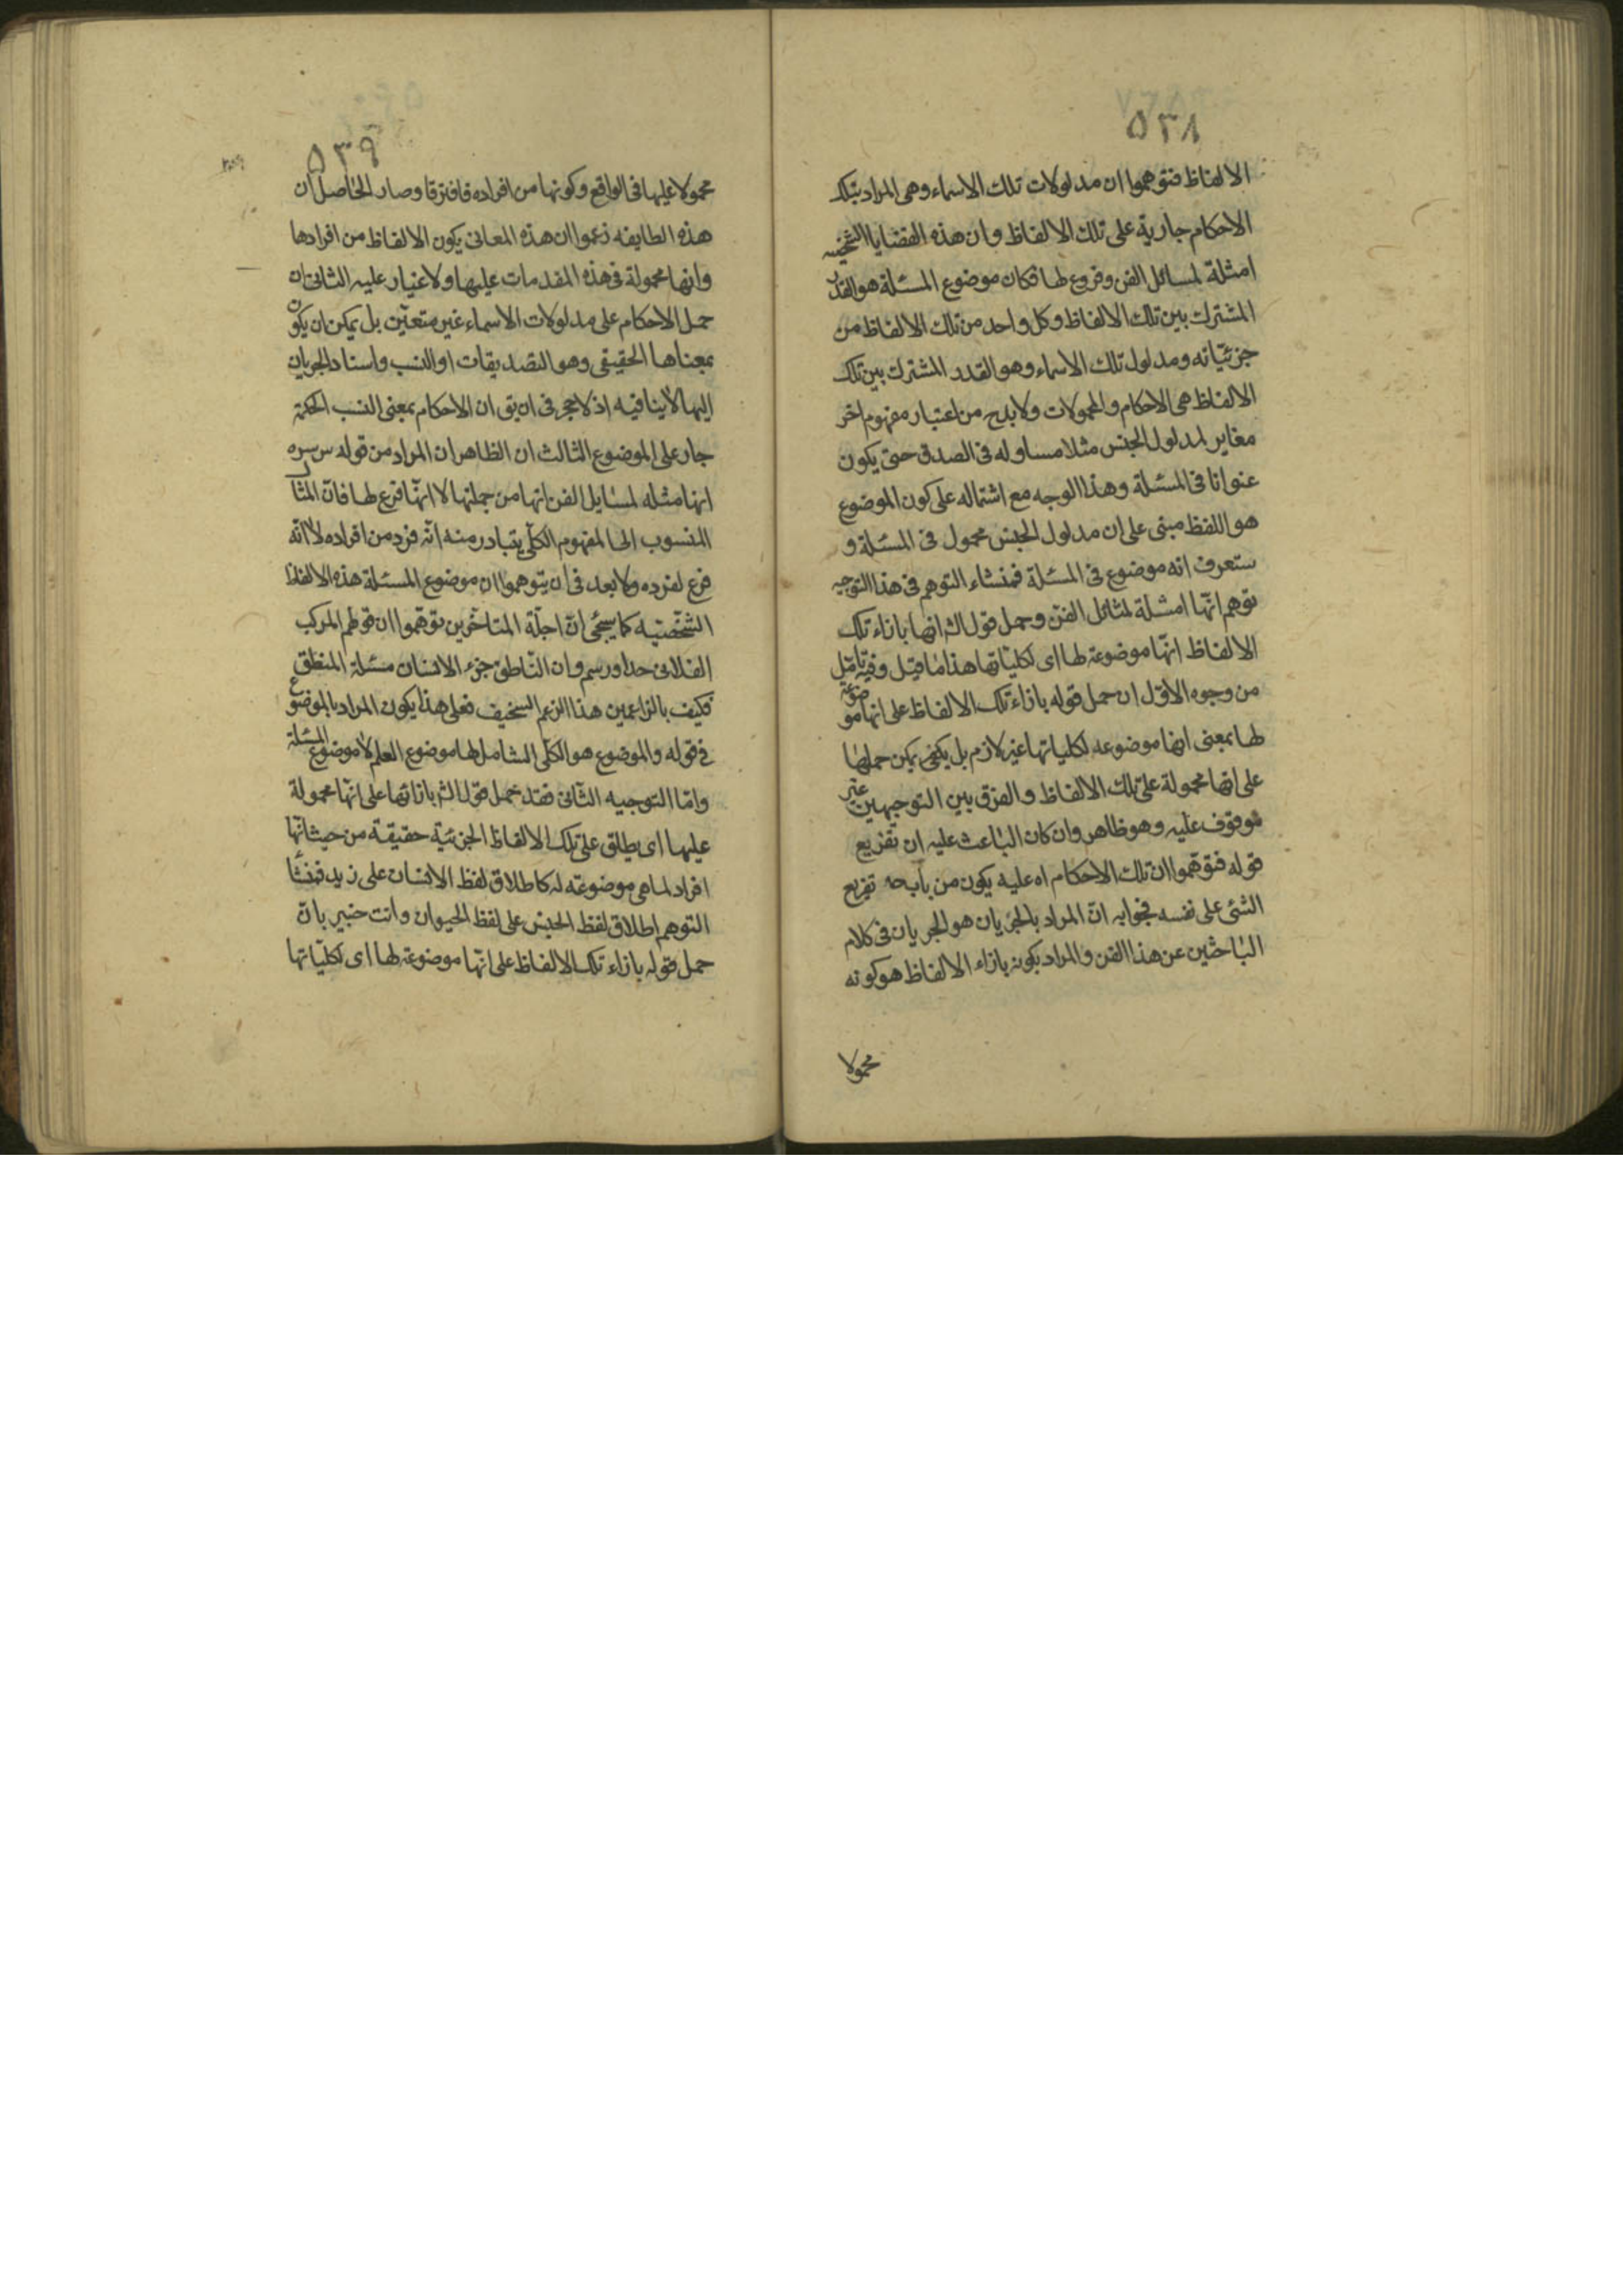 ٥٣٨
الالفاظ فتوهموا ان مدلولات تلك الاسماء وهى المراد بتلك
الاحكام جارية على تلك الالفاظ وان هذه القضايا الشخصيه
امثلة لمسائل الفن وفروع لها فكان موضوع المسئلة هو القدر
المشترك بين تلك الالفاظ وكل واحد من تلك الالفاظ من
جزئيّاته ومدلول تلك الاسماء وهو القدر المشترك بين تلك
الالفاظ هى الاحكام والمحمولات ولابد ح من اعتبار مفهوم اخر
مغاير لمدلول الجنس مثلا مساو له فى الصدق حتى يكون
عنوانا فى المسئلة وهذا الوجه مع اشتماله على كون الموضوع
هو اللفظ مبنى على ان مدلول الجنس محمول فى المسئلة و
ستعرف انه موضوع فى المسئلة فمنشاء التوهم فى هذا التوجيه
توهم انّها امثلة لمثائل الفنّ وحمل قول الش انها بازاء تلك
الالفاظ انّها موضوعة لها اى لكليّاتها هذا ما قيل وفيه تامّل
من وجوه الاوّل ان حمل قوله بازاء تلك الالفاظ على انها موضوعة
لها بمعنى انها موضوعه لكلياتها غير لازم بل يكفى يمكن حملها
على انها محمولة على تلك الالفاظ والفرق بين التوجيهين غير
موقوف عليه وهو ظاهر وان كان الباعث عليه ان تفريع
قوله فتوهموا ان تلك الاحكام اه عليه يكون من باب ح تفريع
الشئ على نفسه فجوابه انّ المراد بالجريان هو الجريان فى كلام
الباحثين عن هذا الفن والمراد بكونه بازاء الالفاظ هو كونه
محمولا
٥٣٩
محمولا عليها فى الواقع وكونها من افراده فافترقا وصار الحاصل ان
هذه الطايفه زعموا ان هذه المعانى يكون الالفاظ من افرادها
وانها محمولة فى هذه المقدمات عليها ولا غبار عليه الثانى ان
حمل الاحكام على مدلولات الاسماء غير متعيّن بل يمكن ان يكون
بمعناها الحقيقى وهو التصديقات او النسب واسناد الجريان
اليها لا ينافيه اذ لا حجر فى ان يق ان الاحكام بمعنى النسب الحكمة
جار على الموضوع الثالث ان الظاهر ان المراد من قوله س سره
انها مثله لمسايل الفن انها من جملتها لا انّها فرع لها فانّ المثال
المنسوب الى المفهوم الكلّى يتبادر منه انّه فرد من افراده لا انّه
فرع لفرده ولا بعد فى ان يتوهموا ان موضوع المسئلة هذه الالفاظ
الشخّصيه كما سيجئ انّ اجلّة المتاخّرين توهّموا ان قولهم المركب
الفلانى حد او رسم وان النّاطق جزء الانسان مسئلة المنطق
فكيف بالزاعمين هذا الزعم السخيف فعلى هذا يكون المراد بالموضوع
فى قوله والموضوع هو الكلّى الشامل لها موضوع العلم لا موضوع المسئلة
وامّا التوجيه الثّانى فقد حمل قول الش بازائها على انّها محمولة
عليها اى يطلق على تلك الالفاظ الجزئيّة حقيقة من حيث انّها
افراد لما هى موضوعه له كاطلاق لفظ الانسان على زيد فمنشأ
التوهم اطلاق لفظ الجنس على لفظ الحيوان وانت خبير بانّ
حمل قوله بازاء تلك الالفاظ على انّها موضوعة لها اى لكليّاتها